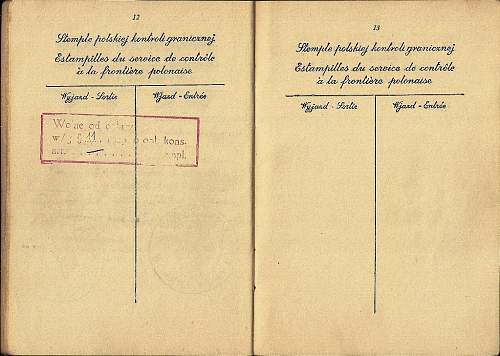 12
Stemple polskiej kontroli granicznej.
Estampilles du service de contrôle
à la frontière polonaise
Wyjazd - Sortie
Wjazd - Entrée
Wolne od
w/g § 11 opł. kons.
13
Stemple polskiej kontroli granicznej
Estampilles du service de contrôle
à la frontière polonaise
Wyjazd - Sortie
Wjazd - Entrée